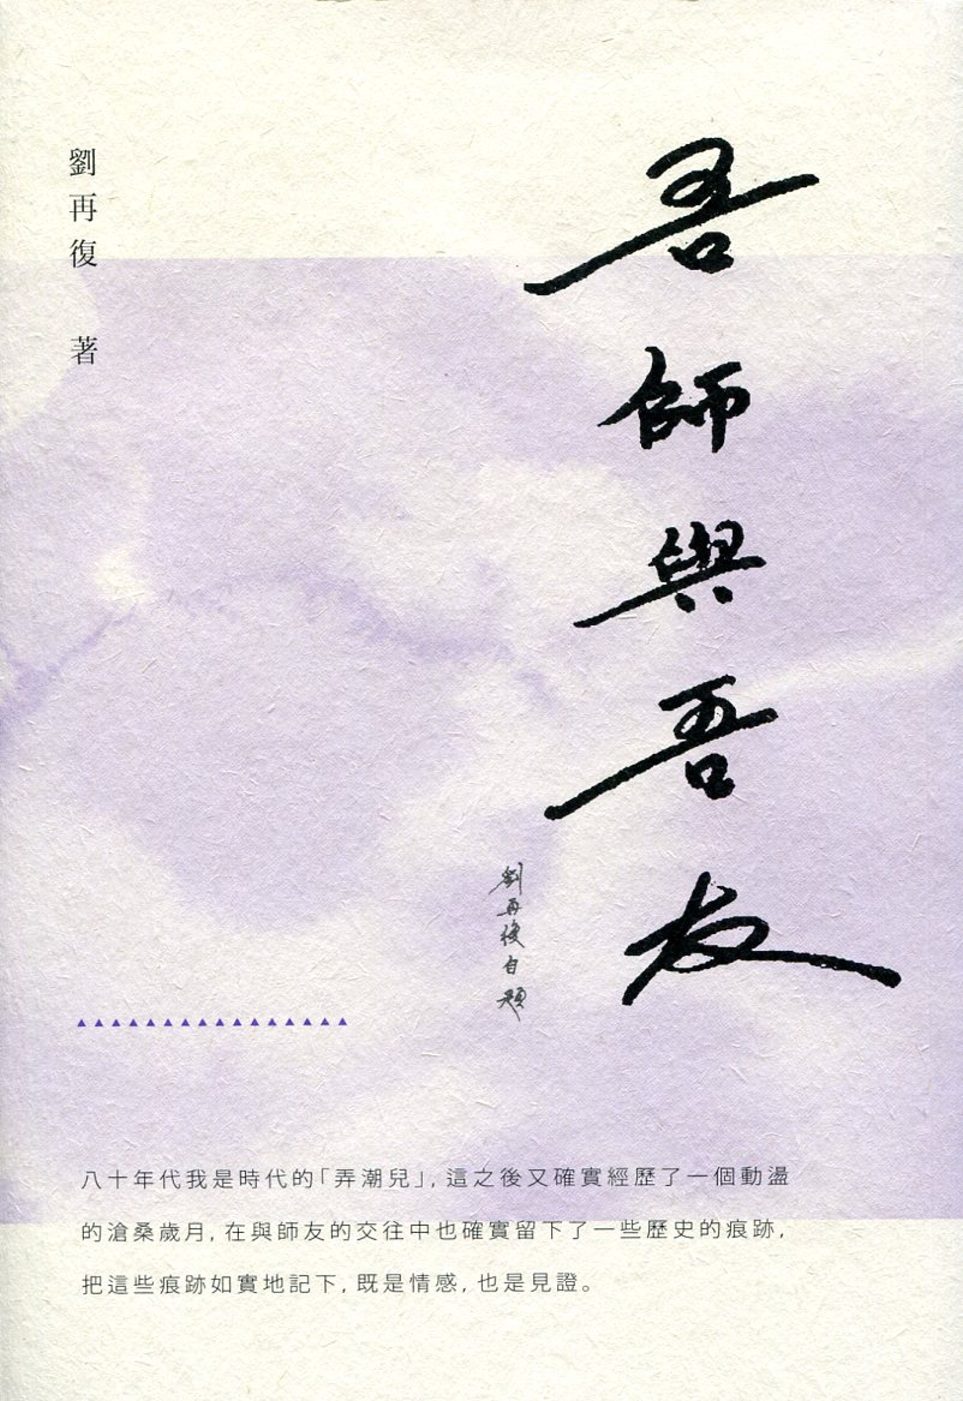 吾師與吾友
劉再復自題
劉再復 著
八十年代我是時代的「弄潮兒」，這之後又確實經歷了一個動盪
的滄桑歲月，在與師友的交往中也確實留下了一些歷史的痕跡，
把這些痕跡如實地記下，既是情感，也是見證。